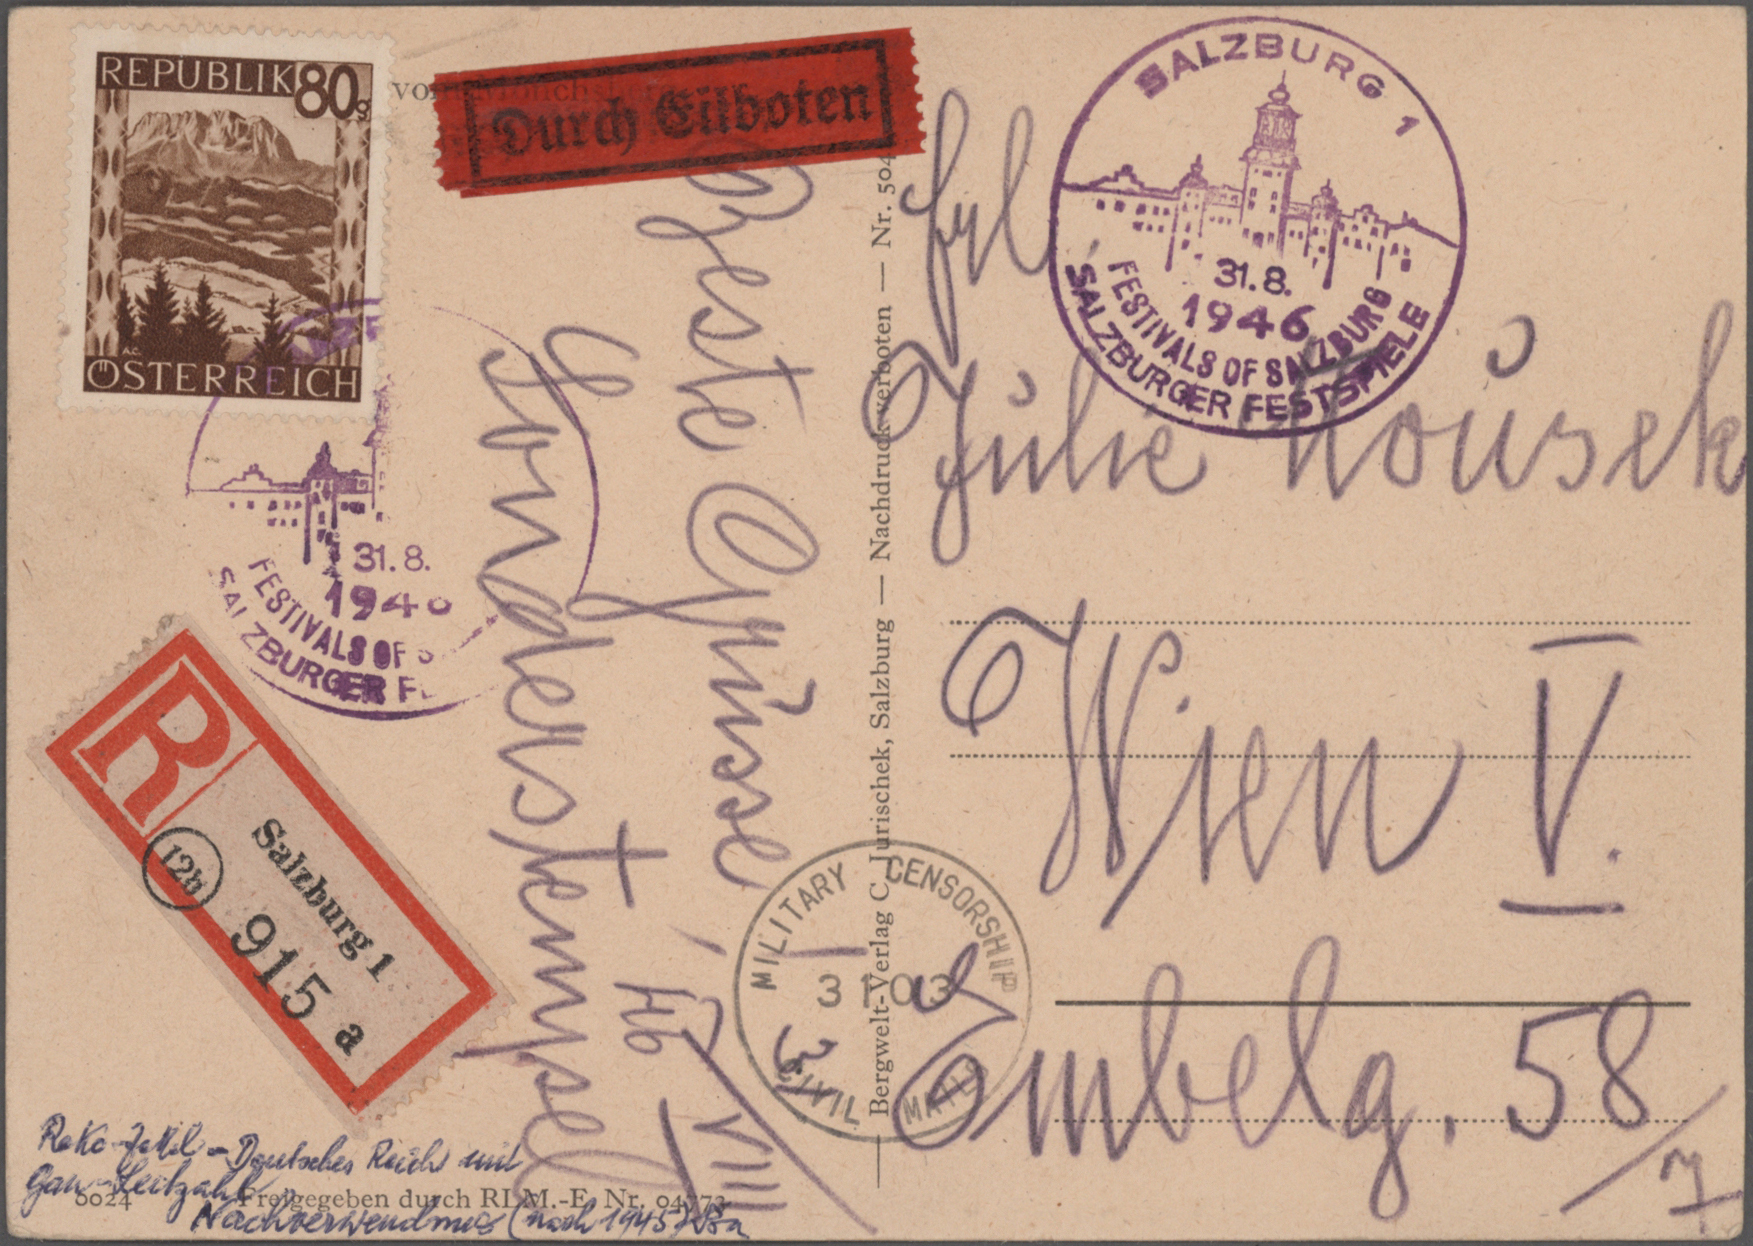 REPUBLIK 80g
ÖSTERREICH
Durch Eilboten
SALZBURG 1
31.8.
1946
FESTIVALS OF SALZBURG
SALZBURGER FESTSPIELE
31.8.
194
FESTIVALS OF S
SALZBURGER FE
R
12b
Salzburg 1
915 a
Beste Grüsse !
Sonderstempel
31/VIII 46
Bergwelt-Verlag C. Jurischek, Salzburg — Nachdruck verboten — Nr. 504
MILITARY CENSORSHIP
3 1103
CIVIL MAILS
Frl
Julie
Wien V.
58/7
Deutsches Reich mit
Gau-Leitzahl
Nachverwendung (nach 1945)
6024 Freigegeben durch RLM.-E. Nr. 04773